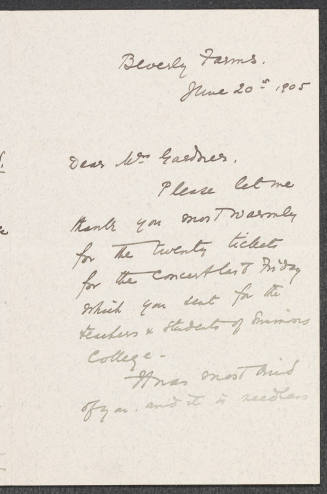 Beverly Farms.
June 20th 1905
Dear Mrs Gardner.
Please let me
thank you most warmly
for the twenty tickets
for the concert last Friday
which you sent for the
teachers & students of Simmons
College -
It was most kind
of you. and it is needless